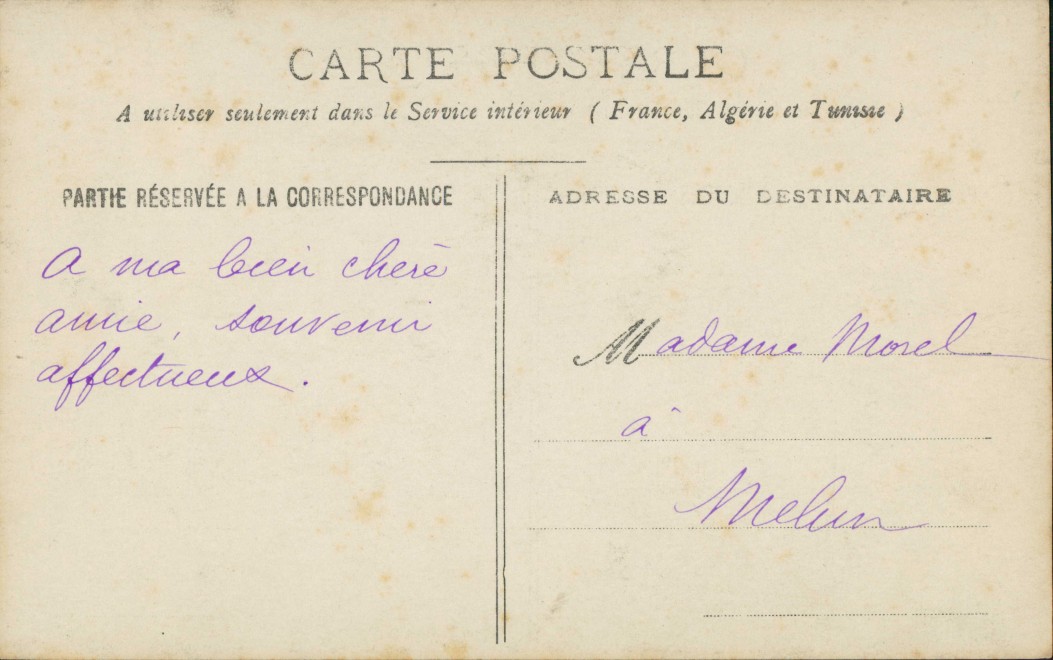 CARTE POSTALE
A utiliser seulement dans le Service intérieur ( France, Algérie et Tunisie )
PARTIE RÉSERVÉE A LA CORRESPONDANCE
ADRESSE DU DESTINATAIRE
A ma bien cherè
amie, souvenir
affectueux.
Madame Morel
à
Melun